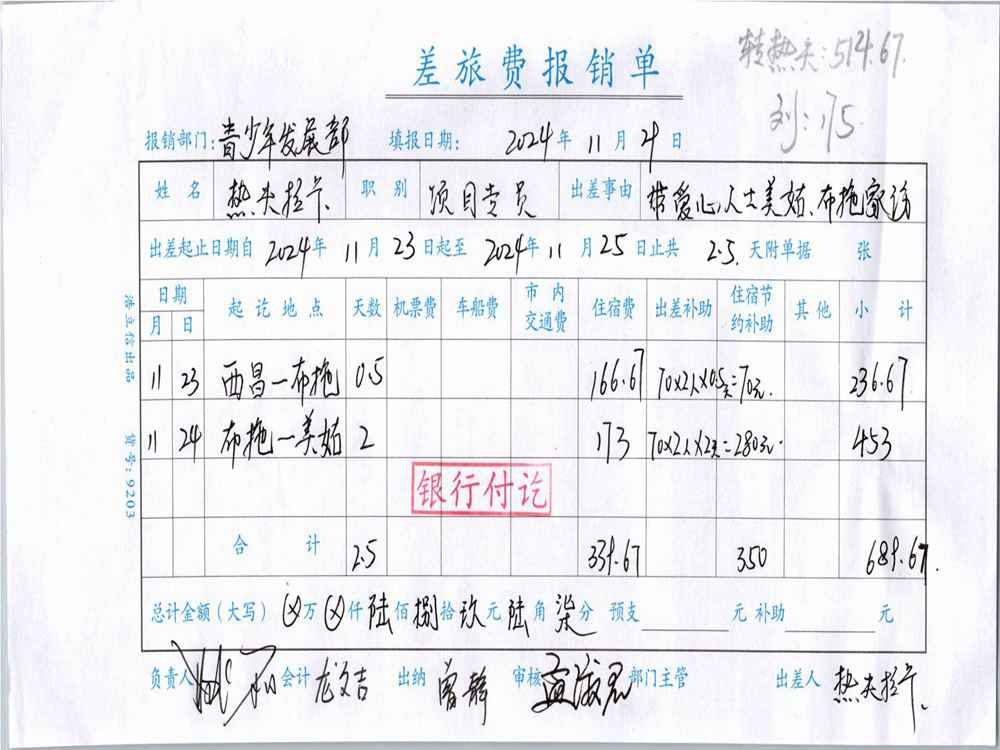 转热夫:514.67.
刘:175.
差旅费报销单
报销部门:青少年发展部 填报日期: 2024年11月21日
姓名 热夫拉卡 职别 项目专员 出差事由 带爱心人士美姑、布拖家访
出差起止日期自2024年11月23日起至2024年11月25日止共2.5天附单据 张
日期 起讫地点 天数 机票费 车船费 市内交通费 住宿费 出差补助 住宿节约补助 其他 小计
月 日
11 23 西昌—布拖 0.5 166.67 70×2人×0.5天=70元. 236.67
11 24 布拖—美姑 2 173 70×2人×2天=280元. 453
银行付讫
合计 2.5 339.67 350 689.67.
总计金额(大写) ⊗万⊗仟陆佰捌拾玖元陆角柒分 预支 元 补助 元
负责人 会计 龙文吉 出纳 曾静 审核 部门主管 出差人 热夫拉卡.
浩立信出品 货号:9203